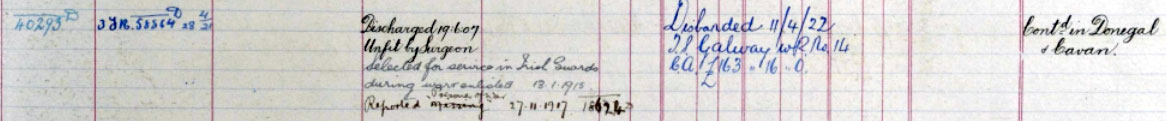 40293 D
Discharged 19.6.07
Unfit by Surgeon
Selected for service in Irish Guards
during war enlisted 13.1.1915
Reported Missing 27.11.1917
Prisoner of War
Disbanded 11/4/22
Galway w.R. No. 14
C.A. £163 " 16 " 0.
Cont.d in Donegal
& Cavan.